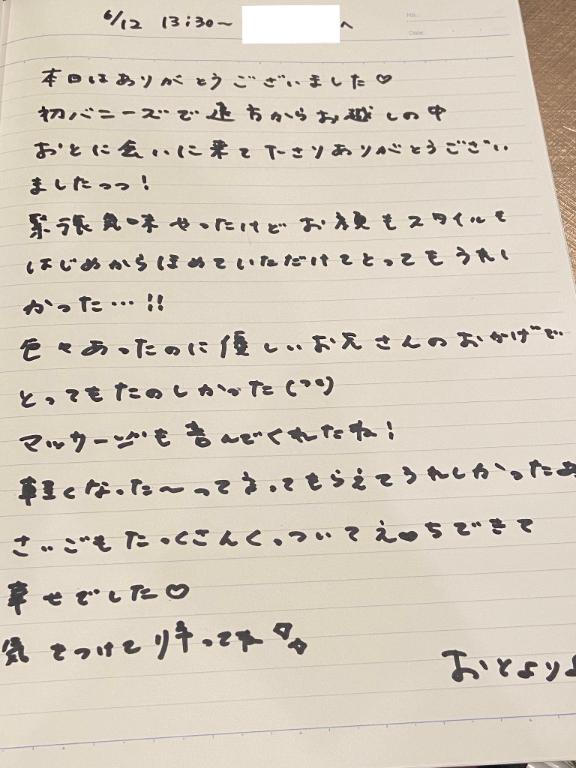 6/12 13:30〜 へ
No.
Date
本日はありがとうございました♡
初バニーズで遠方からお越しの中
おとに会いに来て下さりありがとうござい
ましたっっ!
緊張気味やったけどお顔もスタイルも
はじめからほめていただけてとってもうれし
かった…!!
色々あったのに優しいお兄さんのおかげで
とってもたのしかった
マッサージも喜んでくれたね!
軽くなった〜って言ってもらえてうれしかったよ
さいごもたっくさんくっついてえ♥ちできて
幸せでした♡
気をつけて帰ってね
おとより